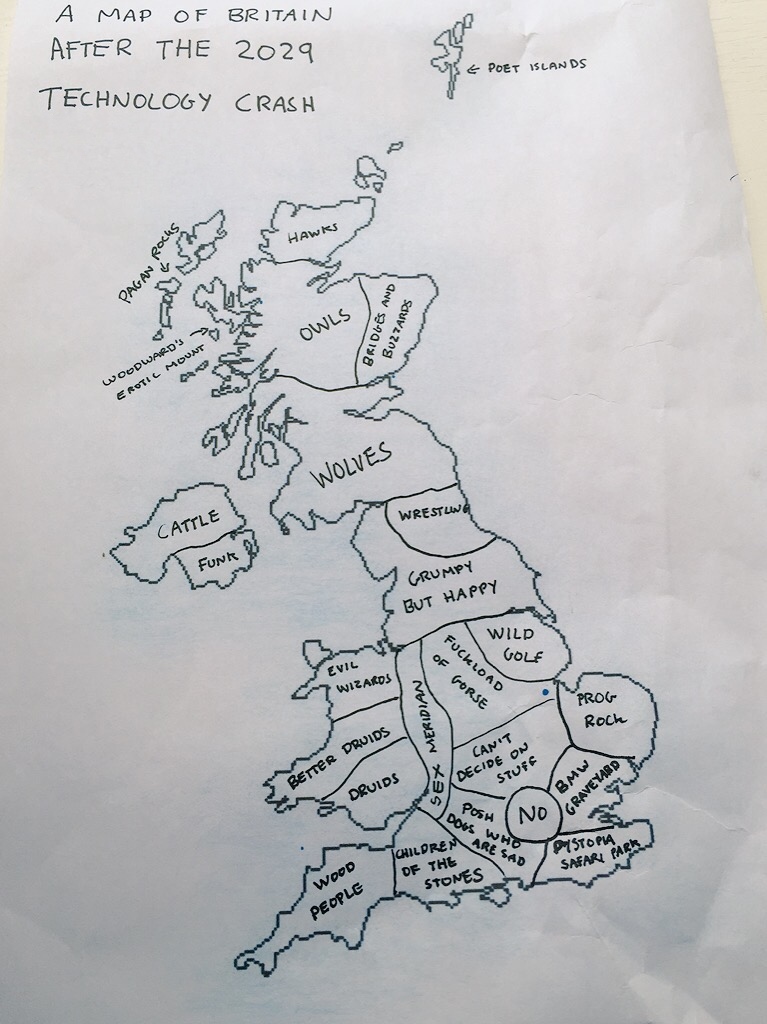 A MAP OF BRITAIN
AFTER THE 2029
TECHNOLOGY CRASH
← POET ISLANDS
HAWKS
PAGAN ROCKS
OWLS
BRIDGES AND
BUZZARDS
WOODWARD'S
EROTIC MOUNT
WOLVES
CATTLE
FUNK
WRESTLING
GRUMPY
BUT HAPPY
WILD
GOLF
FUCKLOAD
OF GORSE
EVIL
WIZARDS
SEX MERIDIAN
PROG
ROCK
BETTER DRUIDS
CAN'T
DECIDE ON
STUFF
DRUIDS
BMW
GRAVEYARD
NO
POSH
DOGS WHO
ARE SAD
DYSTOPIA
SAFARI PARK
CHILDREN
OF THE
STONES
WOOD
PEOPLE